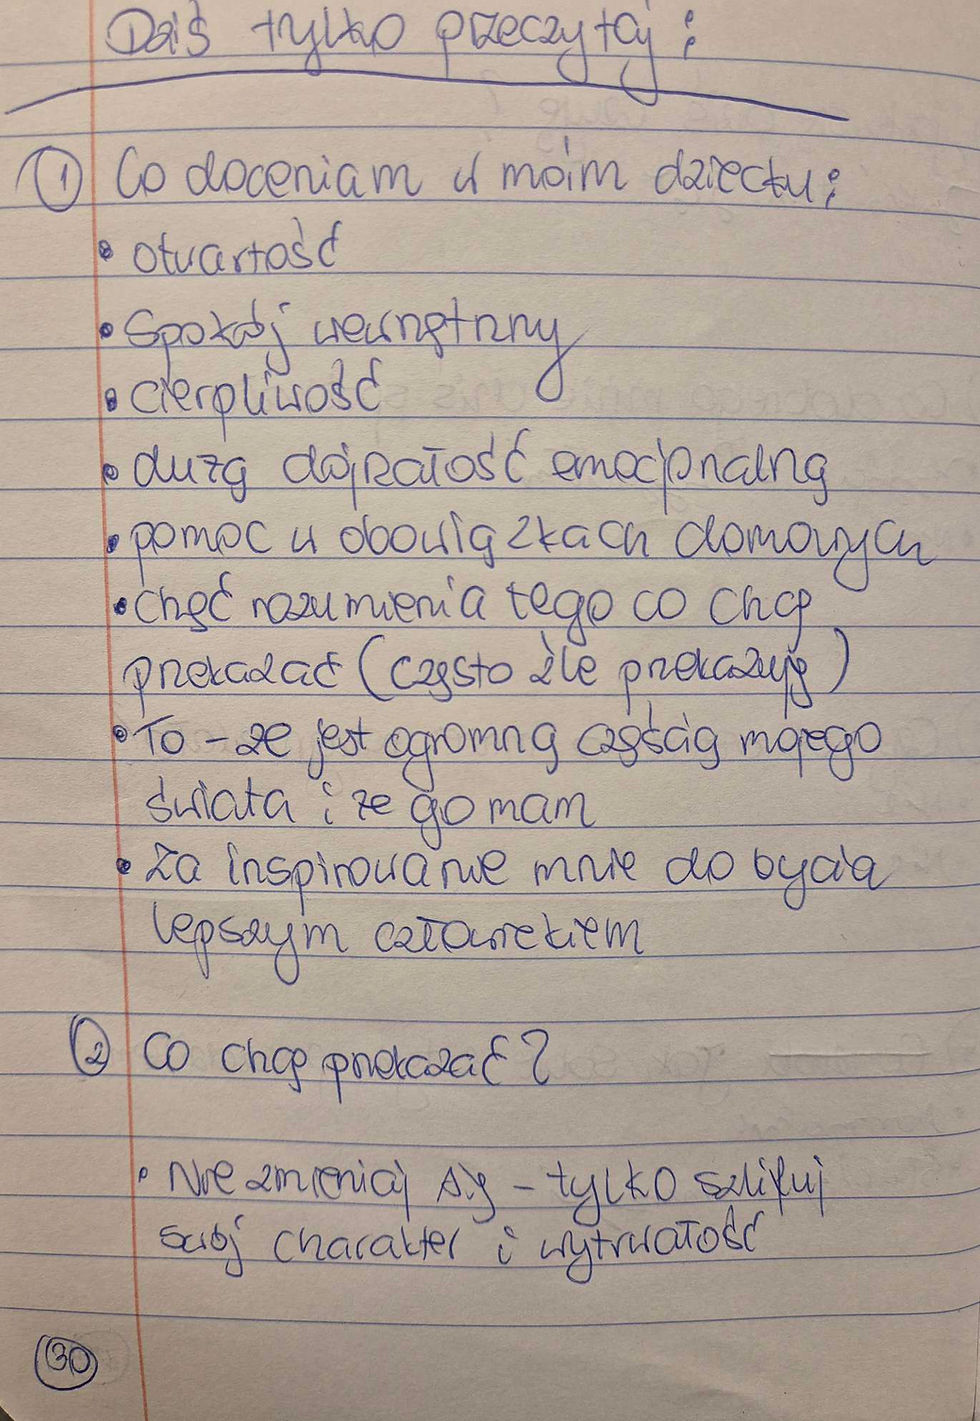 Dziś tylko przeczytaj:
① Co doceniam w moim dziecku:
• otwartość
• Spokój wewnętrzny
• cierpliwość
• dużą dojrzałość emocjonalną
• pomoc w obowiązkach domowych
• chęć rozumienia tego co chcę
przekazać (często źle przekazuję)
• To – że jest ogromną częścią mojego
świata i że go mam
• Za inspirowanie mnie do bycia
lepszym człowiekiem
② Co chcę przekazać?
• Nie zmieniaj się – tylko szlifuj
swój charakter i wytrwałość
30